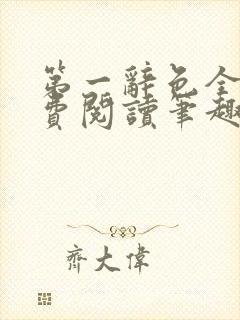 第一辭色全
費閱讀筆趣
齊大偉